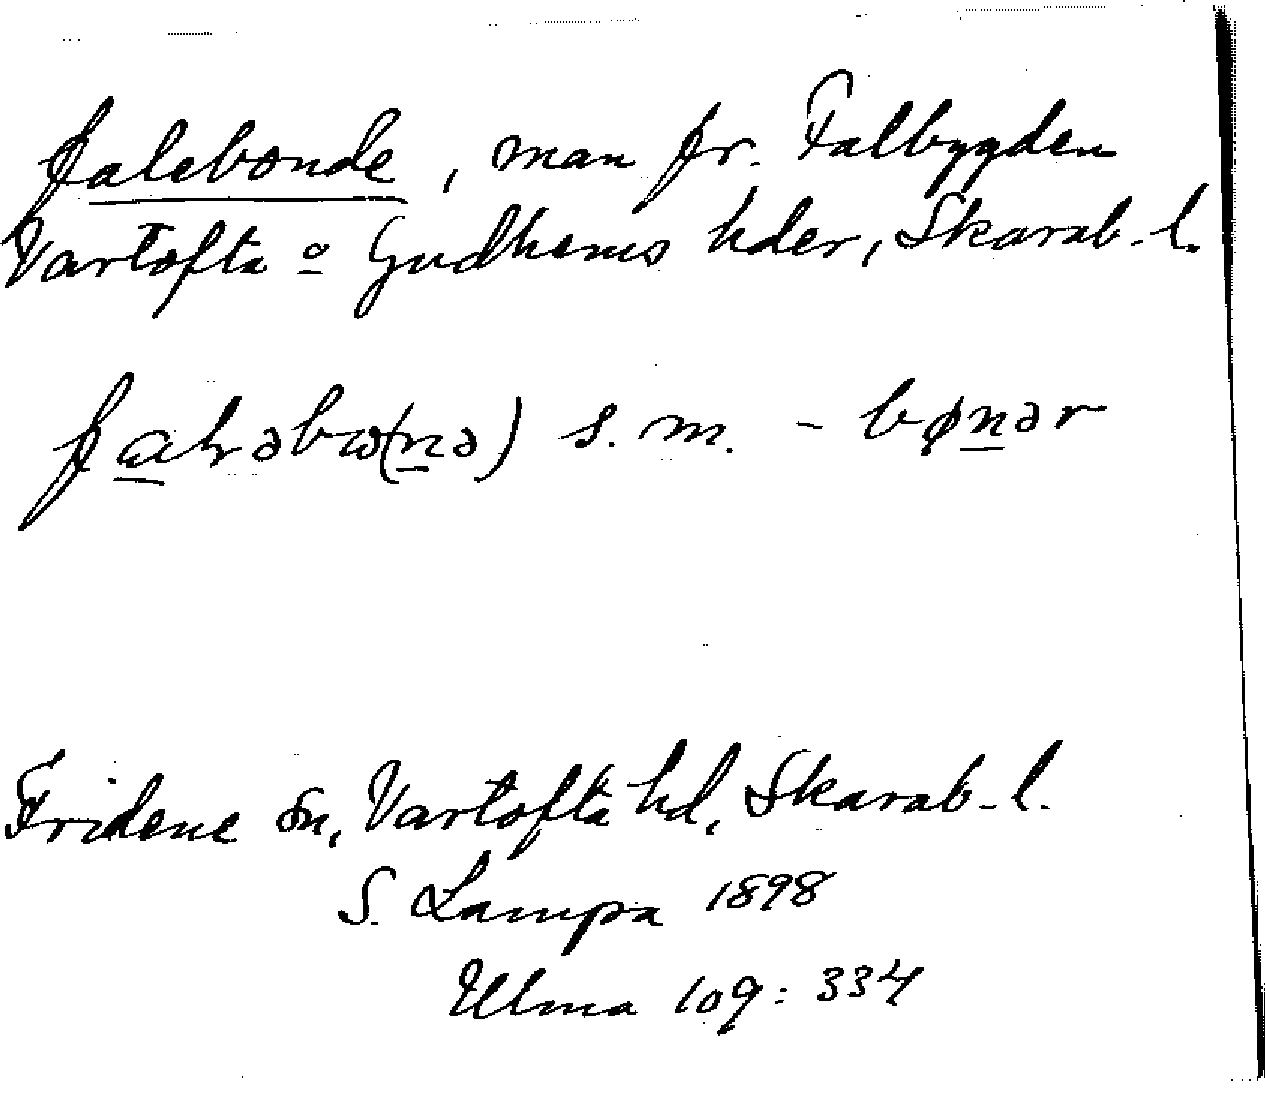 falebonde, man fr. Falbygden
Vartofta o Gudhems hder, Skarab.l.
falɿəbɷ(nə) s.m. - bønər
Fridene sn, Vartofta hd, Skarab.l.
S. Lampa 1898
Ulma 109:334